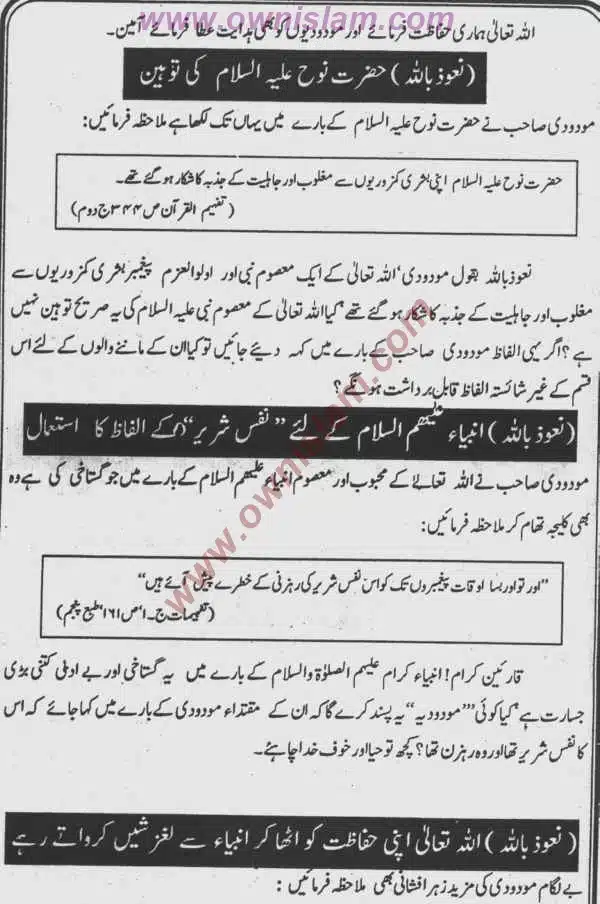 www.ownislam.com
اللہ تعالیٰ ہماری حفاظت فرمائے اور مودودیوں کو بھی ہدایت عطا فرمائے آمین۔
(نعوذ باللہ) حضرت نوح علیہ السلام کی توہین
مودودی صاحب نے حضرت نوح علیہ السلام کے بارے میں یہاں تک لکھا ہے ملاحظہ فرمائیں:
حضرت نوح علیہ السلام اپنی بشری کمزوریوں سے مغلوب اور جاہلیت کے جذبہ کا شکار ہو گئے تھے۔
(تفہیم القرآن ص ۳۴۴ ج دوم)
نعوذ باللہ بقول مودودی، اللہ تعالیٰ کے ایک معصوم نبی اور اولوالعزم پیغمبر بشری کمزوریوں سے
مغلوب اور جاہلیت کے جذبہ کا شکار ہو گئے تھے، کیا اللہ تعالیٰ کے معصوم نبی علیہ السلام کی یہ صریح توہین نہیں
ہے؟ اگر یہی الفاظ مودودی صاحب کے بارے میں کہہ دیئے جائیں تو کیا ان کے ماننے والوں کے لئے اس
قسم کے غیر شائستہ الفاظ قابل برداشت ہونگے؟
(نعوذ باللہ) انبیاء علیہم السلام کے لئے "نفس شریر" کے الفاظ کا استعمال
مودودی صاحب نے اللہ تعالیٰ کے محبوب اور معصوم انبیاء علیہم السلام کے بارے میں جو گستاخی کی ہے وہ
بھی کلیجہ تھام کر ملاحظہ فرمائیں:
"اور تو اور بسا اوقات پیغمبروں تک کو اس نفس شریر کی رہزنی کے خطرے پیش آئے ہیں"
(تفہیمات ج۔۱، ص ۱۶۱، طبع پنجم)
قارئین کرام! انبیاء کرام علیہم الصلوٰۃ والسلام کے بارے میں یہ گستاخی اور بے ادبی کتنی بڑی
جسارت ہے، کیا کوئی "مودودیہ" یہ پسند کرے گا کہ ان کے مقتداء مودودی کے بارے میں کہا جائے کہ اس
کا نفس شریر تھا اور وہ رہزن تھا؟ کچھ تو حیا اور خوف خدا چاہئے۔
(نعوذ باللہ) اللہ تعالیٰ اپنی حفاظت کو اٹھا کر انبیاء سے لغزشیں کرواتے رہے
بے لگام مودودی کی مزید زہر افشانی بھی ملاحظہ فرمائیں:
www.ownislam.com